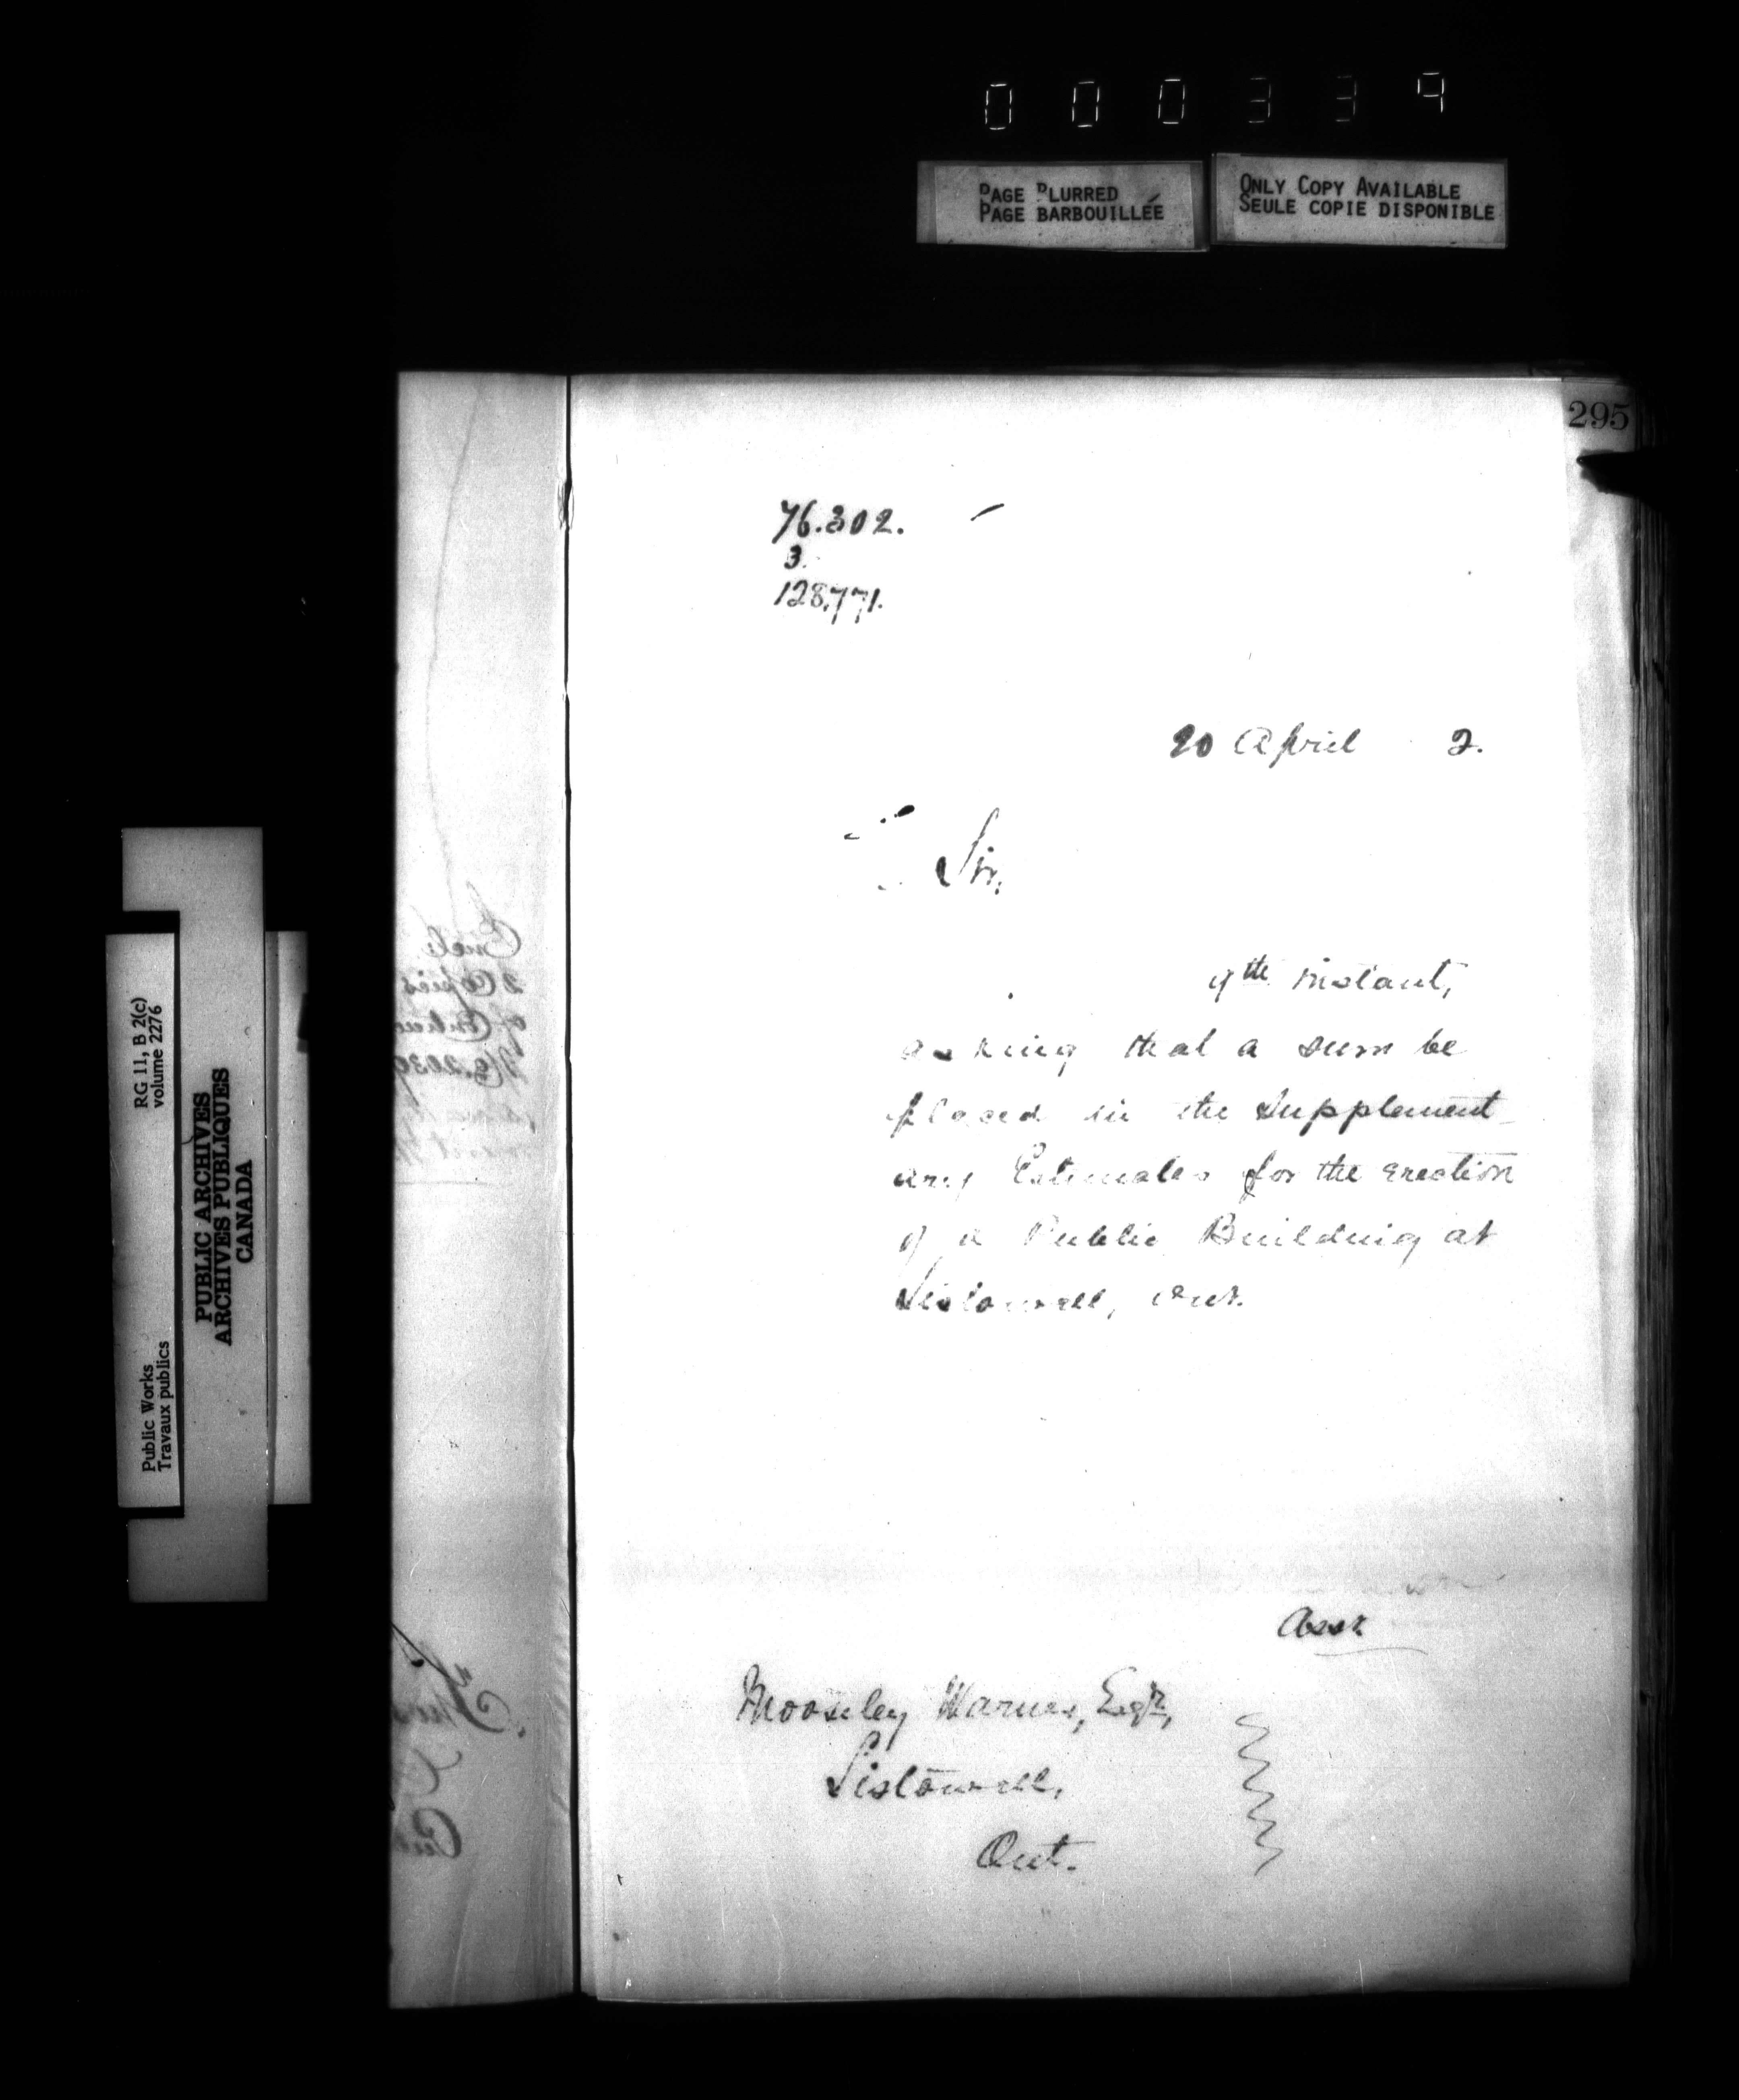 000339
PAGE BLURRED
PAGE BARBOUILLÉE
ONLY COPY AVAILABLE
SEULE COPIE DISPONIBLE
295
76.302.
3.
128,771.
20 April 2.
Sir,
9th instant,
asking that a sum be
placed in the Supplement-
ary Estimates for the erection
of a Public Building at
Listowell, Ont.
Asst
Mooseley Warner, Esqr,
Listowell,
Ont.
RG 11, B 2(c)
volume 2276
Public Works
Travaux publics
PUBLIC ARCHIVES
ARCHIVES PUBLIQUES
CANADA